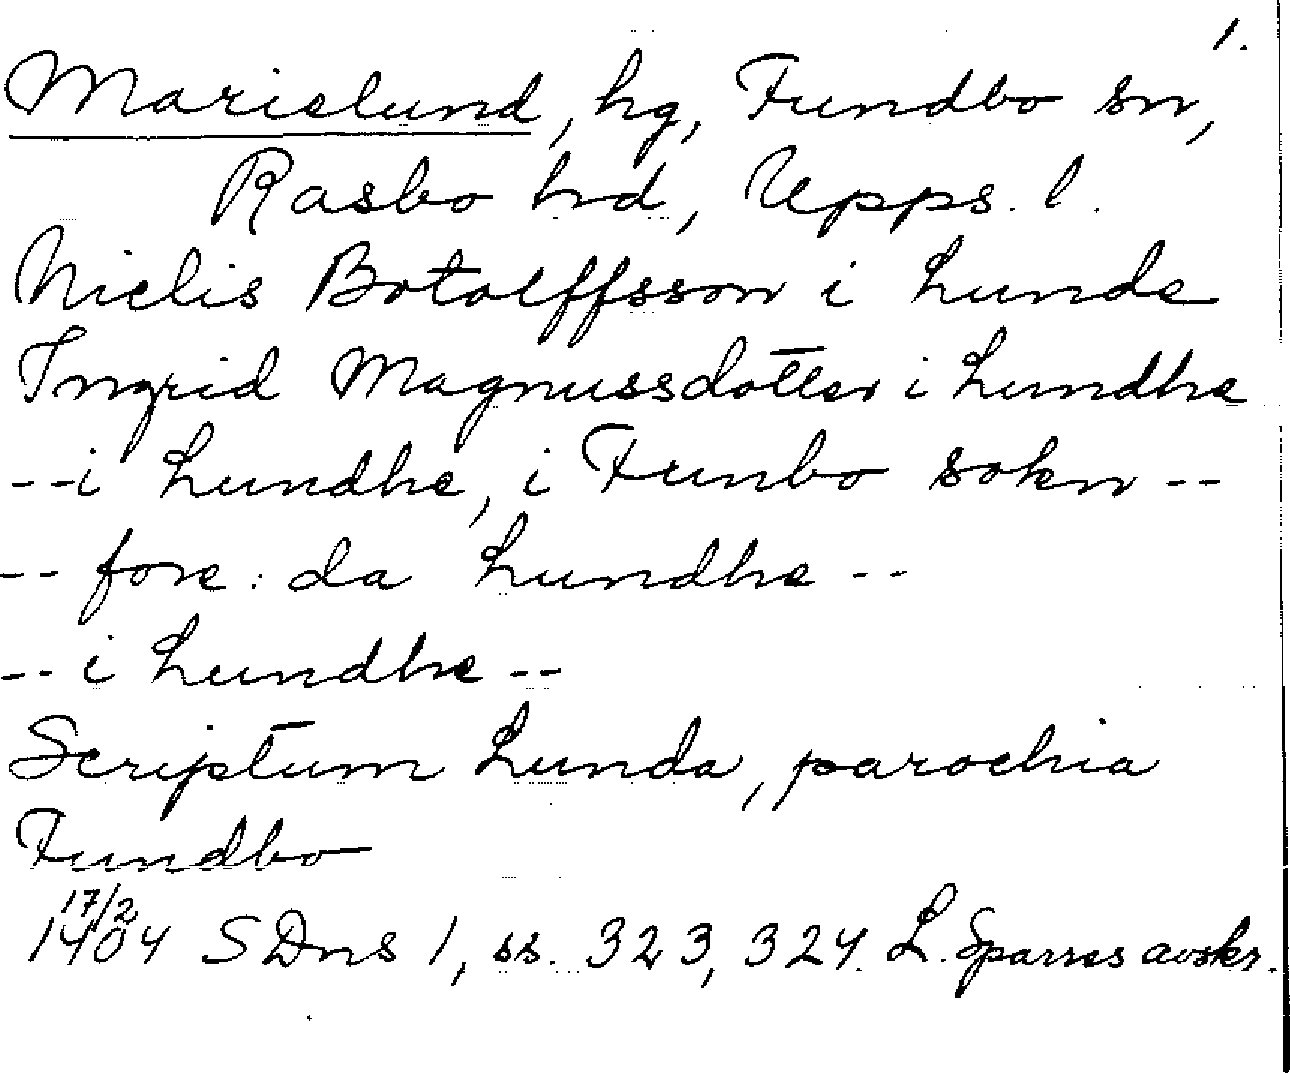 1.
Marielund, hg, Fundbo sn,
Rasbo hd, Upps. l.
Nielis Botolffsson i Lunde
Ingrid Magnussdotter i Lundhe
--i Lundhe, i Funbo sokn--
-- fore: da Lundhe --
-- i Lundhe --
Scriptum Lunda, parochia
Fundbo
17/2
1404 SDns 1, ss. 323, 324. L. Sparres avskr.